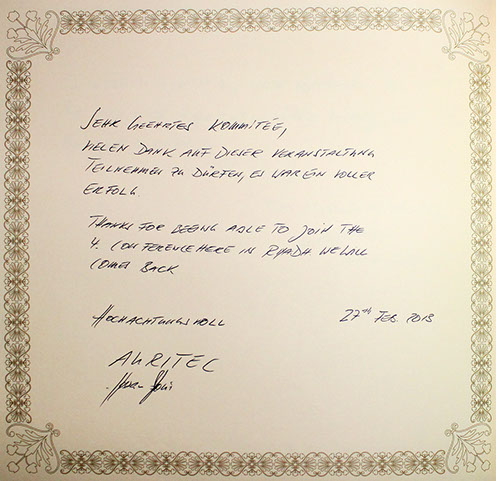 SEHR GEEHRTES KOMMITÉE,
VIELEN DANK AUF DIESER VERANSTALTUNG
TEILNEHMEN ZU DÜRFEN, ES WAR EIN VOLLER
ERFOLG
THANKS FOR BEEING ABLE TO JOIN THE
4. CONFERENCE HERE IN RYADH WE WILL
COME BACK
HOCHACHTUNGSVOLL
27th FEB. 2013
AURITEC